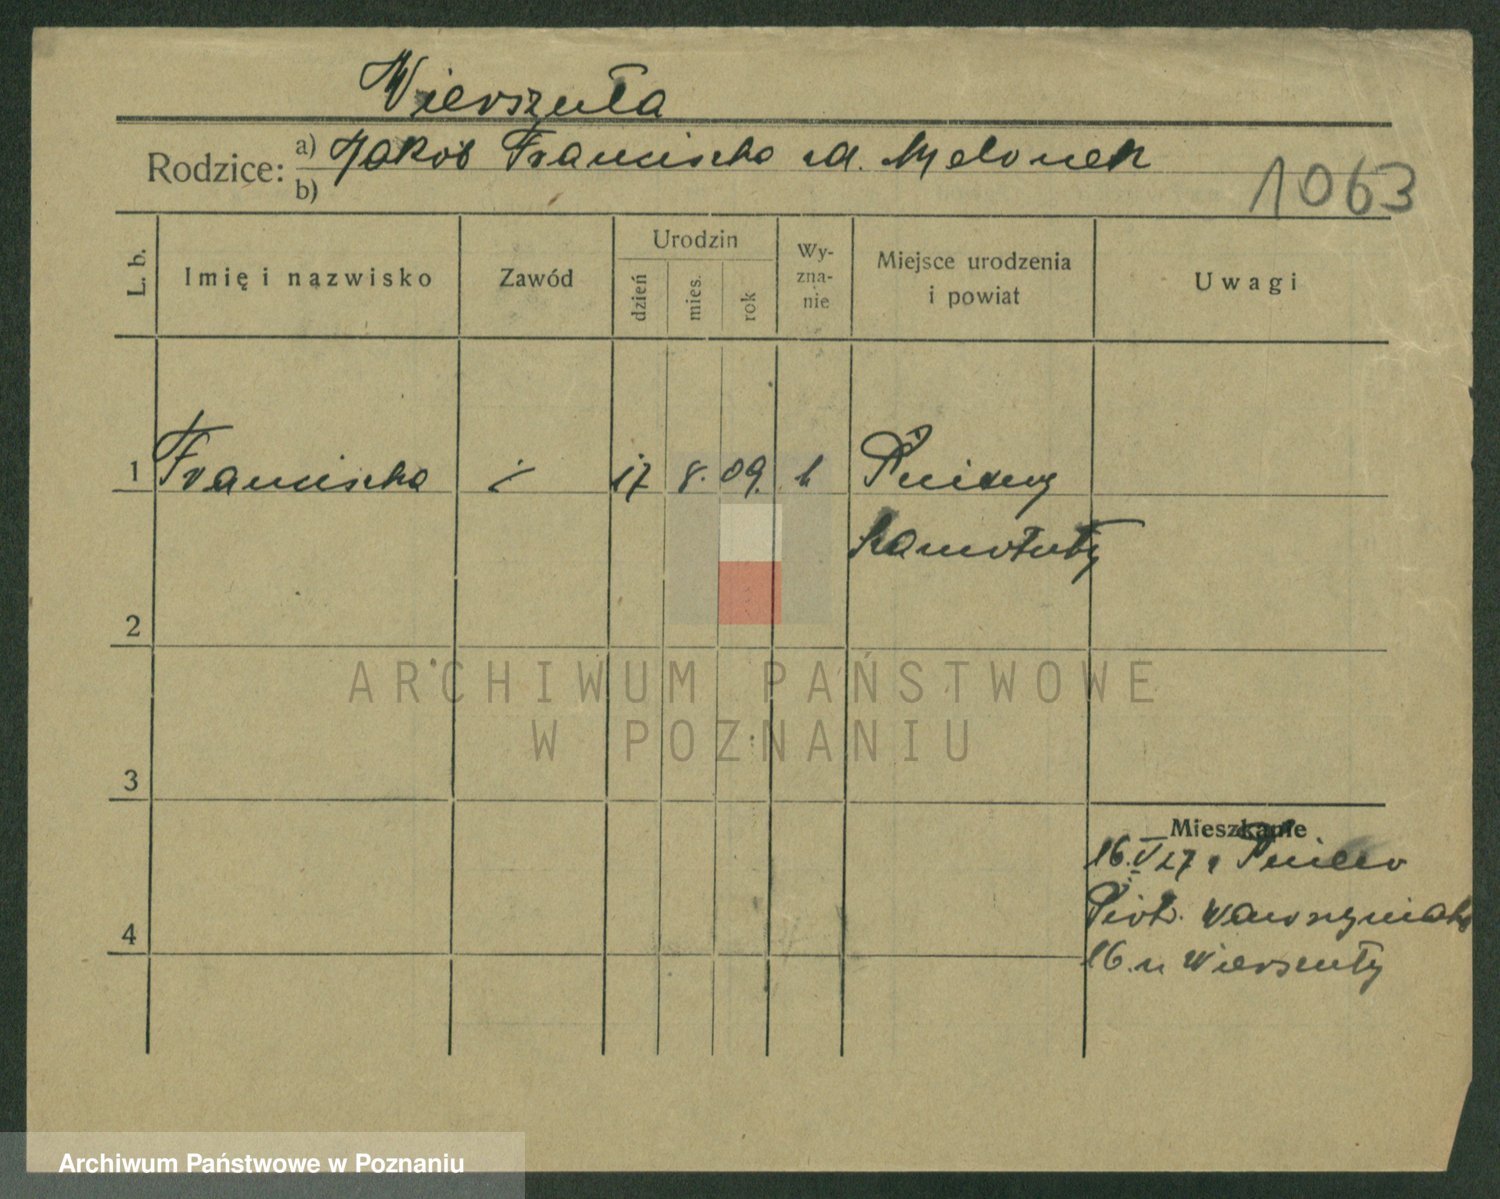 Wierszuła
Rodzice: a) Jakób Franciszka
b)
1063
L. b.
Imię i nazwisko
Zawód
Urodzin
dzień
mies.
rok
Wy-
zna-
nie
Miejsce urodzenia
i powiat
Uwagi
1 Franciszka 17 8. 09. Pniewy
Szamotuły
2
3
4
Mieszkanie
16.V 27
Piotr. Wawrzyniaka
16. u Wierszuły
ARCHIWUM PAŃSTWOWE
W POZNANIU
Archiwum Państwowe w Poznaniu